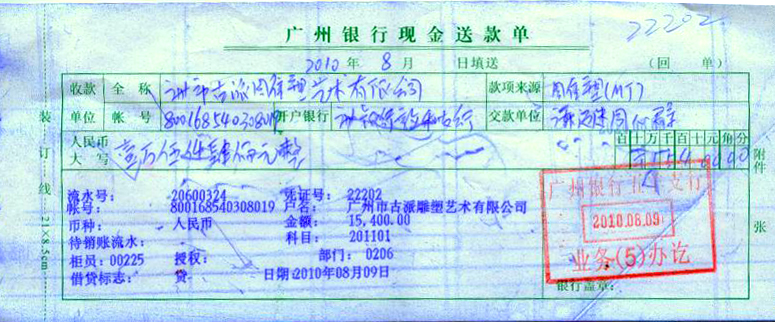 22202
广州银行现金送款单
2010年8月 日填送 (回单)
收款 全称 广州市古派雕塑艺术有限公司 款项来源 雕塑(MT)
单位 帐号 800168540308019 开户银行 交款单位
人民币 百十万千百十元角分
大写 壹万伍仟肆佰元整
附件
张
装订线
21×8.5cm
流水号: 20600324 凭证号: 22202
帐号: 800168540308019 户名: 广州市古派雕塑艺术有限公司
币种: 人民币 金额: 15,400.00
待销账流水: 科目: 201101
柜员: 00225 授权: 部门: 0206
借贷标志: 贷 日期:2010年08月09日
广州银行 支行
2010.08.09
业务(5)办讫
银行盖章: